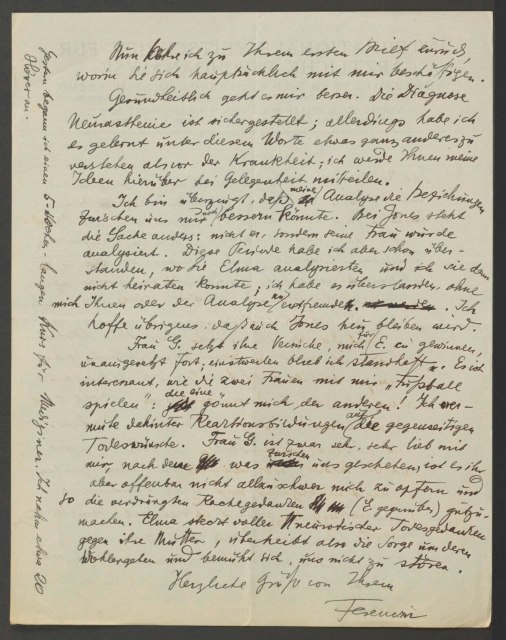 Nun kehre ich zu Ihrem ersten Brief zurück,
worin Sie sich hauptsächlich mit mir beschäftigen.
Gesundheitlich geht es mir besser. Die Diagnose
Neurasthenie ist sichergestellt; allerdings habe ich
es gelernt unter diesem Worte etwas ganz anderes zu
verstehen als vor der Krankheit; ich werde Ihnen meine
Ideen hierüber bei Gelegenheit mitteilen.
Ich bin überzeugt, daß meine Analyse die Beziehungen
zwischen uns nur bessern könnte. Bei Jones steht
die Sache anders: nicht er sondern seine Frau wurde
analysiert. Diese Periode habe ich aber schon über-
standen, wo Sie Elma analysierten und ich sie dann
nicht heiraten konnte; ich habe es überstanden ohne
mich Ihnen oder der Analyse zu entfremden. Ich
hoffe übrigens, daß auch Jones treu bleiben wird.
Frau G. setzt ihre Versuche, mich für E. zu gewinnen,
unausgesetzt fort; einstweilen blieb ich standhaft. Es ist
interessant, wie die zwei Frauen mit mir „Fußball
spielen", die eine gönnt mich der anderen! Ich ver-
mute dahinter Reaktionsbildungen auf die gegenseitigen
Todeswünsche. Frau G. ist zwar sehr, sehr lieb mit
mir, nach dem was zwischen uns geschehen, ist es ihr
aber offenbar nicht allzuschwer mich zu opfern und
so die verdrängten Rachegedanken (E gegenüber) gutzu-
machen. Elma steckt voller neurotischer Todesgedanken
gegen ihre Mutter, übertreibt also die Sorge um deren
Wohlergehen und bemüht sich, uns nicht zu stören.
Herzliche Grüße von Ihrem
Ferenczi
Gestern begann ich einen 5-wochen-langen Kurs für Mediziner. Ich nahm etwa 20
Hörer an